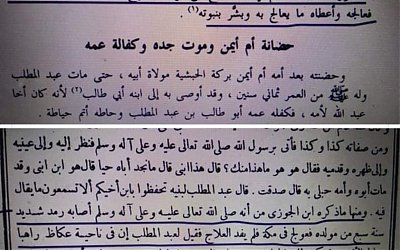 فعالجه وأعطاه ما يعالج به وبشر بنبوته (١).
حضانة أم أيمن وموت جده وكفالة عمه
وحضنته بعد أمه أم أيمن بركة الحبشية مولاة أبيه ، حتى مات عبد المطلب
وله ﷺ من العمر ثماني سنين ، وقد أوصى به إلى ابنه أبي طالب (٢) لأنه كان أخا
عبد الله لأمه ، فكفله عمه أبو طالب بن عبد المطلب وحاطه أتم حياطة .
ومن صفاته كذا وكذا فأتى برسول الله صلى الله تعالى عليه وعلى آله وسلم فنظر إليه وإلى عينيه
وإلى ظهره وقدميه فقال هو هو ماهذا منك؟ قال هذا ابنى قال مانجد أباه حيا قال هو ابن ابنى وقد
مات أبوه وأمه حبلى به قال صدقت . قال عبد المطلب لبنيه تحفظوا بابن أخيكم ألا تسمعون مايقال
فيه . ومنها ماذكره ابن الجوزى من أنه صلى الله تعالى عليه وعلى آله وسلم أصابه رمد شديد
سنة سبع من مولده فعولج فى مكة فلم يفد العلاج فقيل لعبد المطلب إن فى ناحية عكاظ راهبا